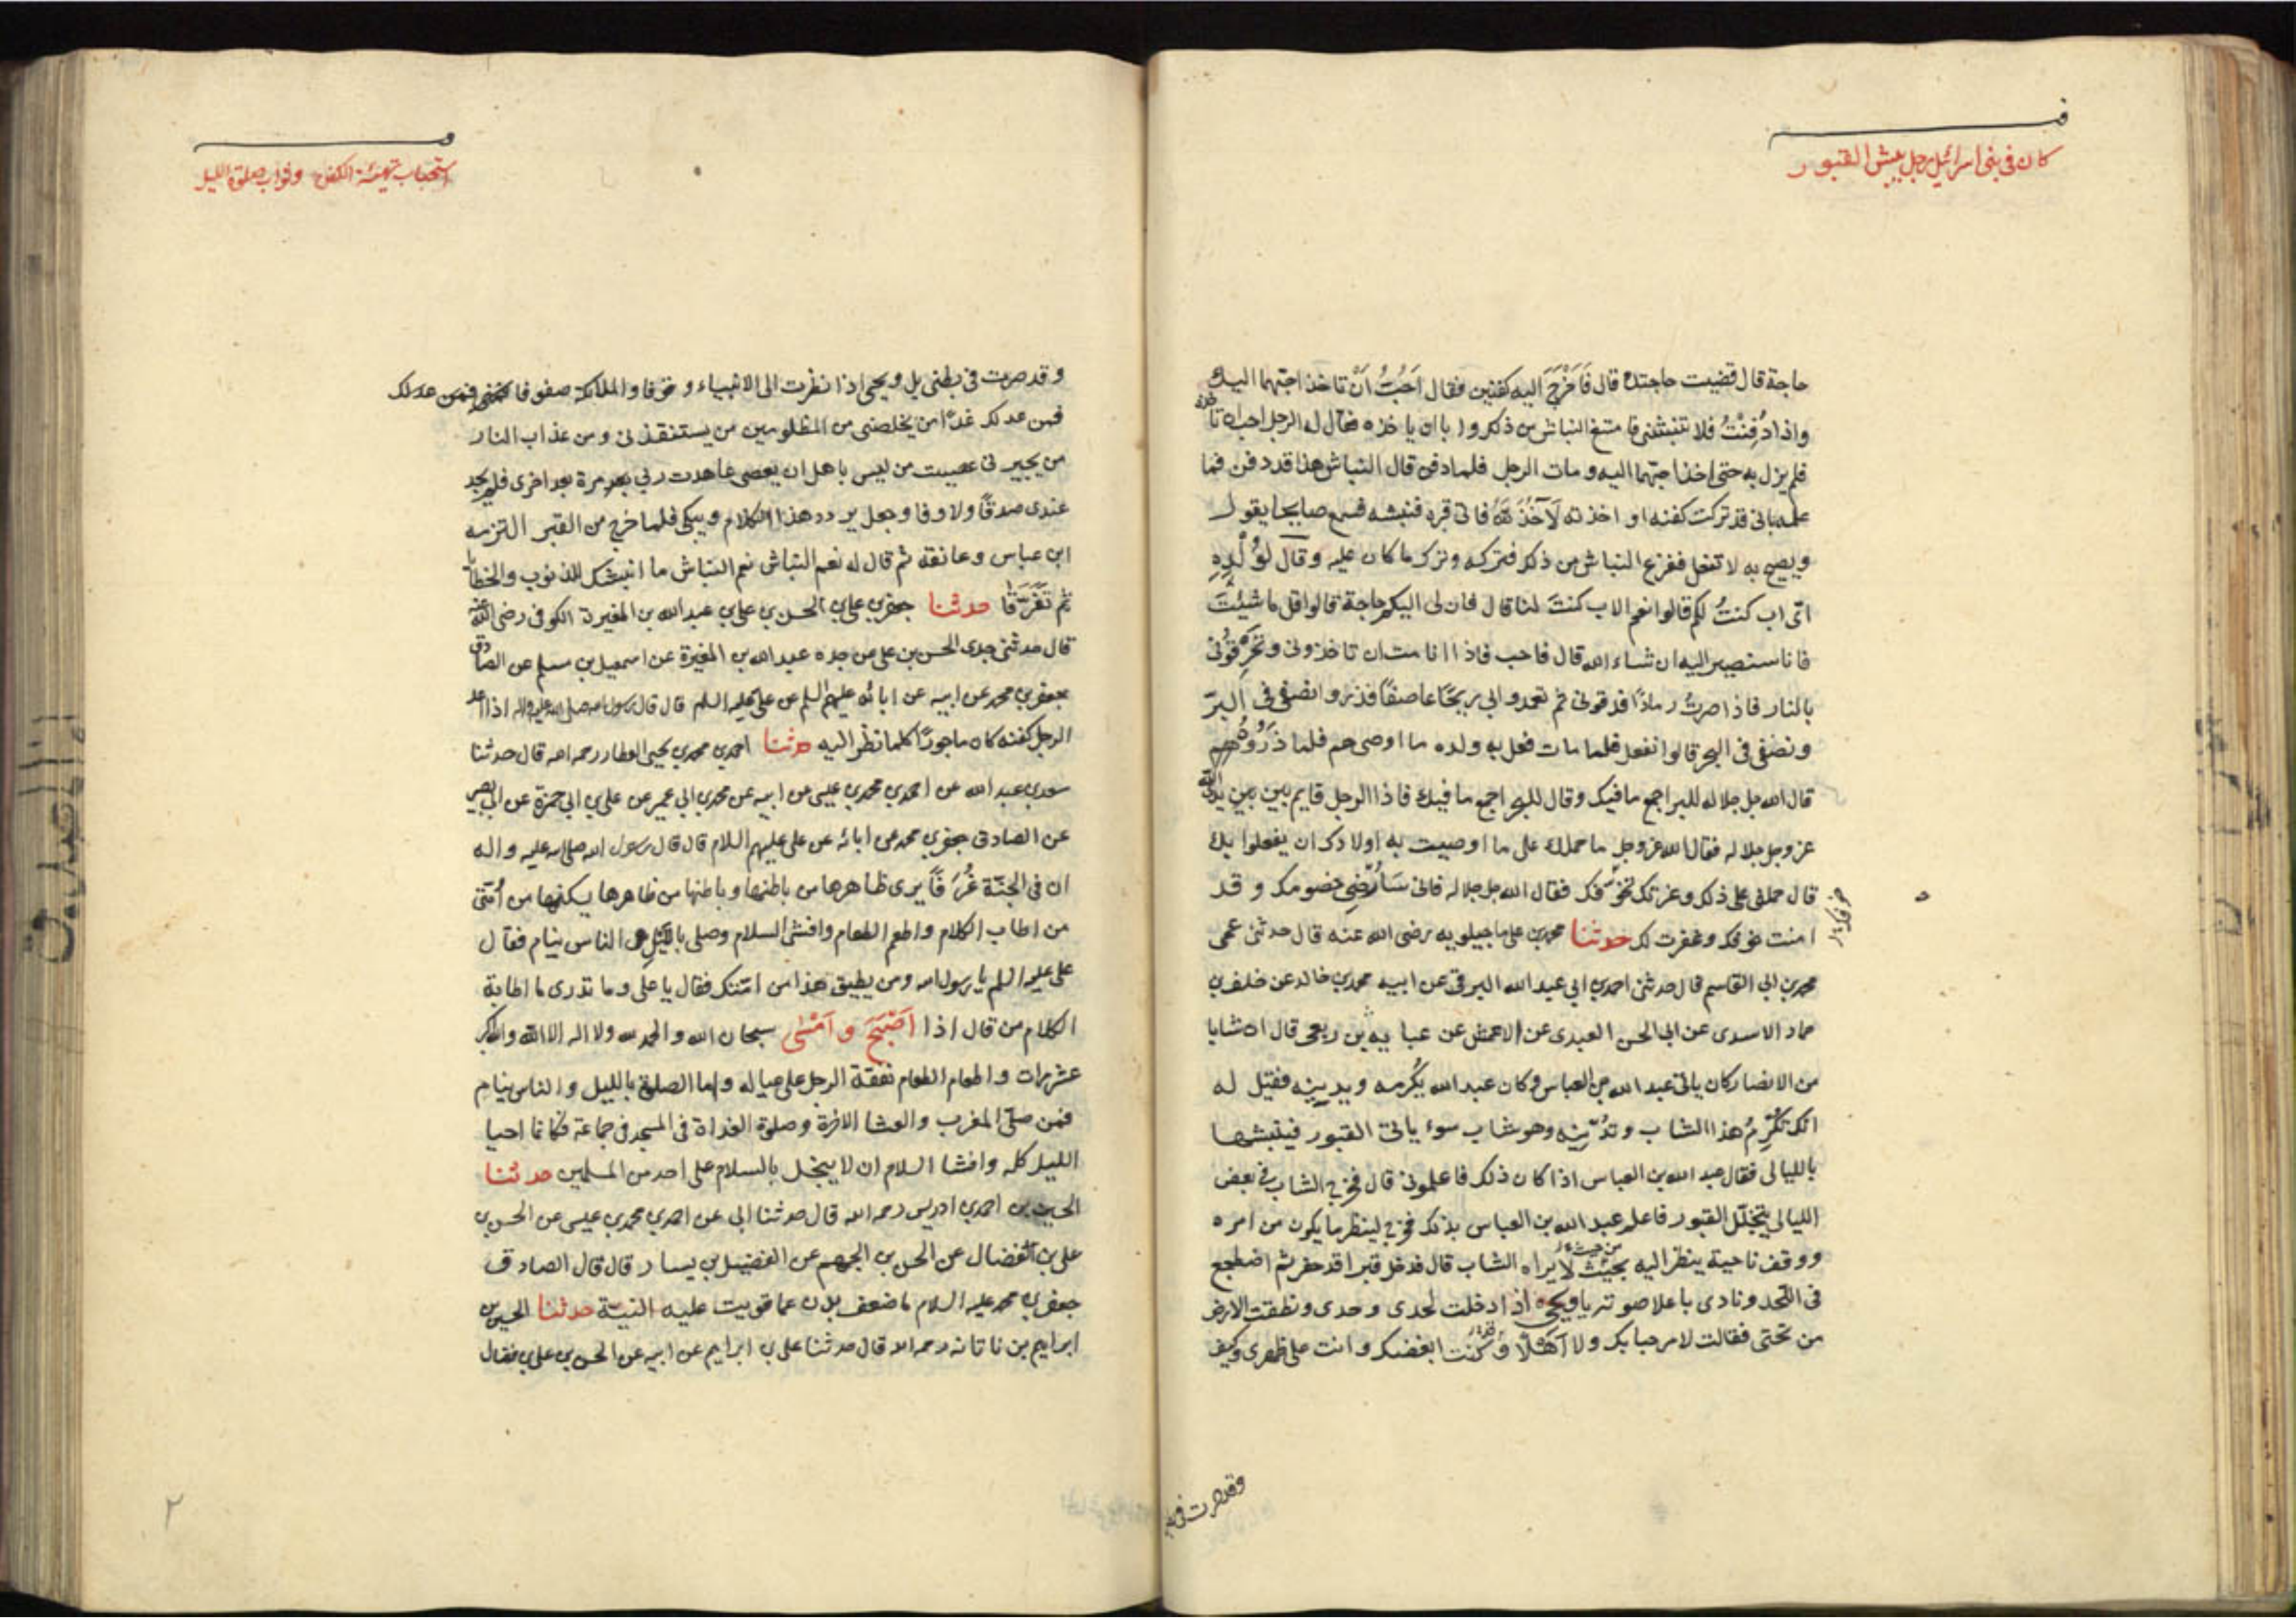 كان في بني اسرائيل رجل ينبش القبور
حاجة قال قضيت حاجتك قال فَاَخْرَجَ اليه كفنين فقال اُحِبُّ اَنْ تاخذ احبّهما اليك
واذا دُفِنْتُ فلا تنبشني فامتنع النباش من ذلك وابا ان ياخذه فقال له الرجل احب ان تاخذه
فلم يزل به حتى اخذ احبهما اليه ومات الرجل فلما دفن قال النباش هذا قد دفن فما
علمه باني قد تركت كفنه او اخذته لَآخُذَنَّهُ فاتى قبره فنبشه فسمع صايحا يقول
ويصيح به لا تفعل ففزع النباش من ذلك فتركه وترك ما كان عليه وقال لِوُلْدِهِ
اىّ اب كنتُ لكم قالوا نعم الاب كنتَ لنا قال فان لي اليكم حاجة قالوا قل ما شِئْتَ
فانا سنصير اليه ان شاء الله قال فاحب فاذا انا مت ان تاخذوني وتُحْرِقُوني
بالنار فاذا صرتُ رمادًا فدقوني ثم تعمدوا بي ريحًا عاصفًا فذروا نصفي في البرّ
ونصفي في البحر قالوا نفعل فلما مات فعل به ولده ما اوصىهم فلما ذَرُّوهُ
قال الله جل جلاله للبر اجمع ما فيك وقال للبحر اجمع ما فيك فاذا الرجل قايم بين يدي الله
عز وجل جلاله فقال الله عز وجل ما حملك على ما اوصيت به اولادك ان يفعلوا بك
قال حملني على ذلك وعزتك خوفك فقال الله جل جلاله فاني سَاُرْضِي خصومك وقد
امنت خوفك وغفرت لك حدثنا محمد بن علي ماجيلويه رضي الله عنه قال حدثني عمي
محمد بن ابي القاسم قال حدثني احمد بن ابي عبد الله البرقي عن ابيه محمد بن خالد عن خلف بن
حماد الاسدي عن ابي الحسن العبدي عن الاعمش عن عباية بن ربعي قال ان شابا
من الانصار كان ياتي عبد الله بن العباس وكان عبد الله يُكْرِمه ويدنيه فقيل له
انك تُكْرِمُ هذا الشاب وتُدْنِيه وهو شاب سوء ياتي القبور فينبشها
بالليالي فقال عبد الله بن العباس اذا كان ذلك فاعلموني قال فخرج الشاب في بعض
الليالي يتخلّل القبور فاعلم عبد الله بن العباس بذلك فخرج لينظر ما يكون من امره
ووقف ناحية ينظر اليه بحيث لا يراه الشاب قال فدخل قبرا قد حفر ثم اضطجع
في اللحد ونادى باعلا صوته يا ويحي اذا دخلت لحدي وحدي ونطقت الارض
من تحتي فقالت لا مرحبا بك ولا اَهْلًا قد كنت ابغضك وانت على ظهري وكيف
وقد صرت في
استحباب تهيئة الكفن وثواب صلوة الليل
وقد صرت في بطني بل ويحي اذا نظرت الى الانبياء وقوفا والملائكة صفوفا فمن عدلك
فمن عدلك غدًا من يخلصني من المظلومين من يستنقذني ومن عذاب النار
من يجيرني عصيت من ليس باهل ان يعصى عاهدت ربي بعد مرة بعد اخرى فلم يجد
عندي صدقًا ولا وفا وجعل يردد هذا الكلام ويبكي فلما خرج من القبر التزمه
ابن عباس وعانقه ثم قال له نعم النباش نعم النباش ما انبشك للذنوب والخطايا
ثم تَفَرَّقا حدثنا جعفر بن علي بن الحسن بن علي بن عبد الله بن المغيرة الكوفي رضي الله عنه
قال حدثني جدي الحسن بن علي عن جده عبد الله بن المغيرة عن اسمعيل بن مسلم عن الصادق
جعفر بن محمد عن ابيه عن ابائه عليهم السلم عن علي عليه السلم قال قال رسول الله صلى الله عليه واله اذا اعد
الرجل كفنه كان ماجورًا كلما نظر اليه حدثنا احمد بن محمد بن يحيى العطار رحمه الله قال حدثنا
سعد بن عبد الله عن احمد بن محمد بن عيسى عن ابيه عن محمد بن ابي عمير عن علي بن ابي حمزة عن ابي بصير
عن الصادق جعفر بن محمد عن ابائه عن علي عليهم السلام قال قال رسول الله صلى الله عليه واله
ان في الجنّة غُرَفًا يرى ظاهرها من باطنها وباطنها من ظاهرها يسكنها من اُمّتي
من اطاب الكلام واطعم الطعام وافشى السلام وصلى بالليل والناس نيام فقال
علي عليه السلم يا رسول الله ومن يطيق هذا من امتك فقال يا علي وما تدري ما اطابة
الكلام من قال اذا اَصْبَحَ و اَمْسٰى سبحان الله والحمد لله ولا اله الا الله والله اكبر
عشر مرات واطعام الطعام نفقة الرجل على عياله واما الصلوة بالليل والناس نيام
فمن صلّى المغرب والعشا الاخرة وصلوة الغداة في المسجد في جماعة فكانما احيا
الليل كله وافشا السلام ان لا يبخل بالسلام على احد من المسلمين حدثنا
الحسين بن احمد بن ادريس رحمه الله قال حدثنا ابي عن احمد بن محمد بن عيسى عن الحسن بن
علي بن الفضال عن الحسن بن الجهم عن الفضيل بن يسار قال قال الصادق
جعفر بن محمد عليه السلام ما ضعف بدن عما قويت عليه النية حدثنا الحسين بن
ابراهيم بن ناتانه رحمه الله قال حدثنا علي بن ابراهيم عن ابيه عن الحسن بن علي بن فضال
٢